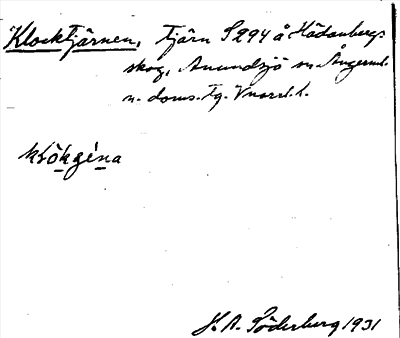 Klocktjärnen, tjärn S 294 å Hädanbergs
skog, Anundsjö sn Ångerml.
n. doms. Tg. Vnorrl. l.
klòkgéna
H. A. Söderberg 1931